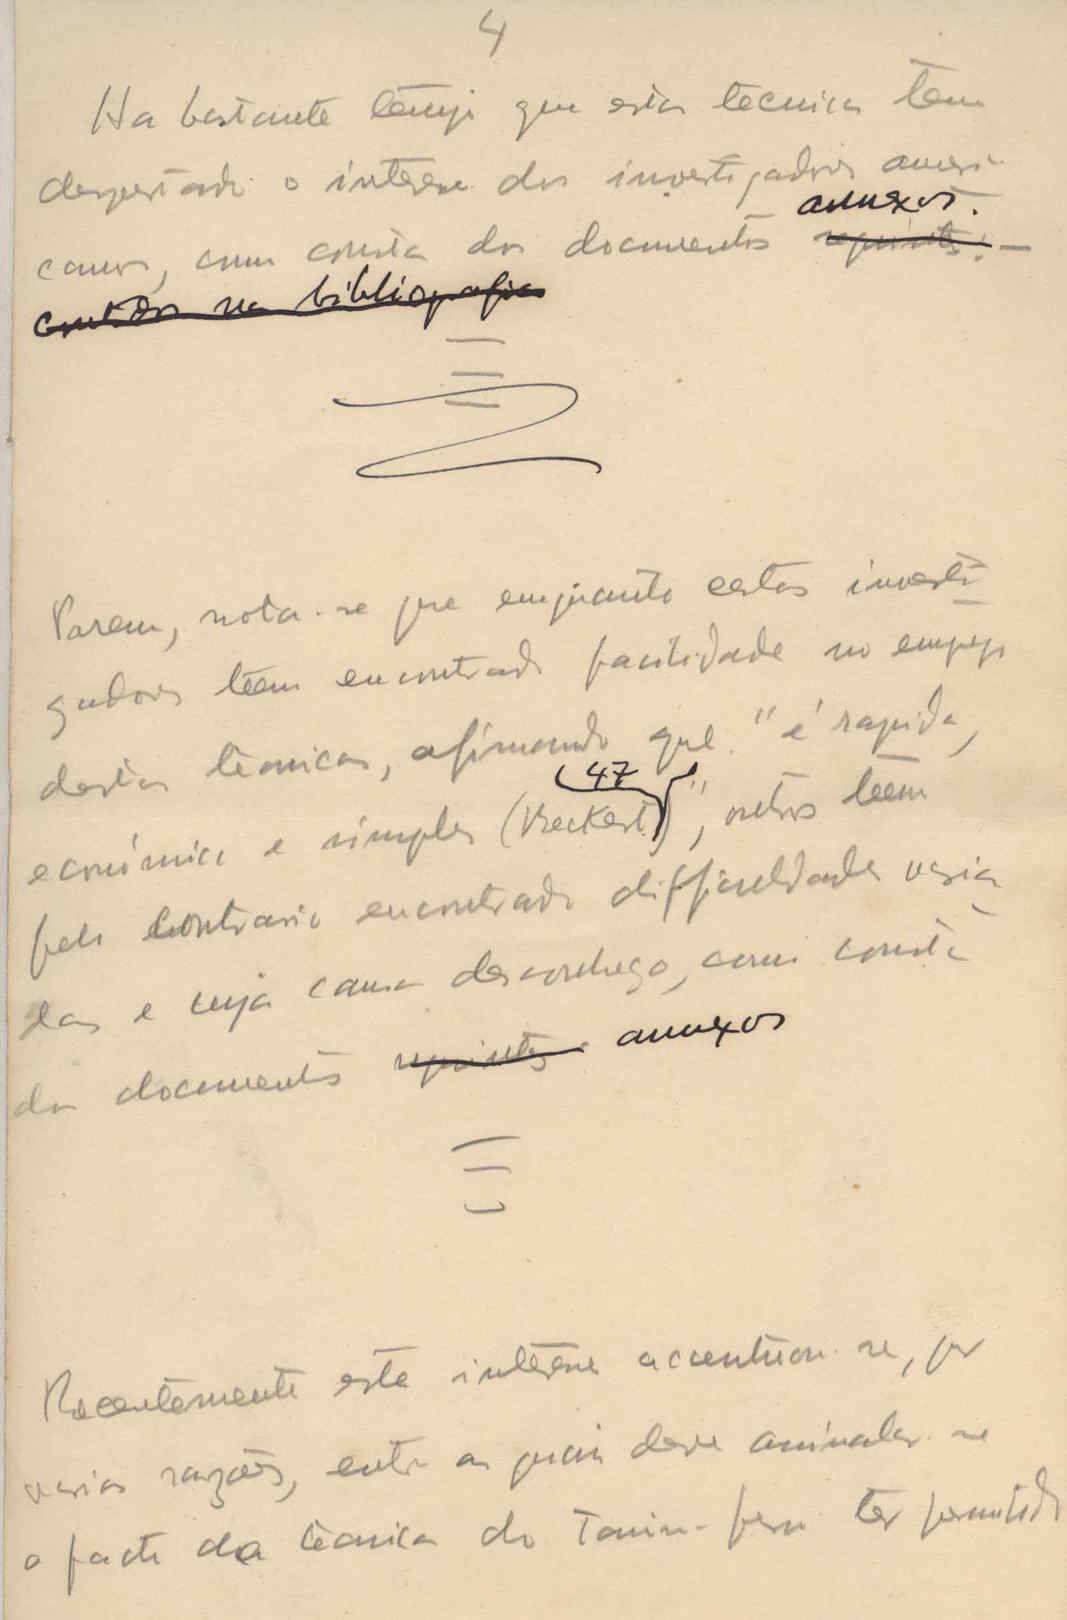 4
Ha bastante tempo que estas tecnicas tem
despertado o interesse dos investigadores ameri-
annexos.
canos, como consta dos documentos seguintes: -
contidos na bibliografia
Porem, nota-se que emquanto certos investi-
gadores têem encontrado facilidade no emprego
destas técnicas, afirmando que "é rapida,
(47)
económica e simples (Reckert)", outros têem
pelo contrario encontrado difficuldades varia-
das e cuja causa desconheço, como consta
dos documentos seguintes annexos
Recentemente este interesse accentuou-se, por
varias razões, entre as quais deve assinalar-se
o facto da técnica do Tanino-ferro ter permitido